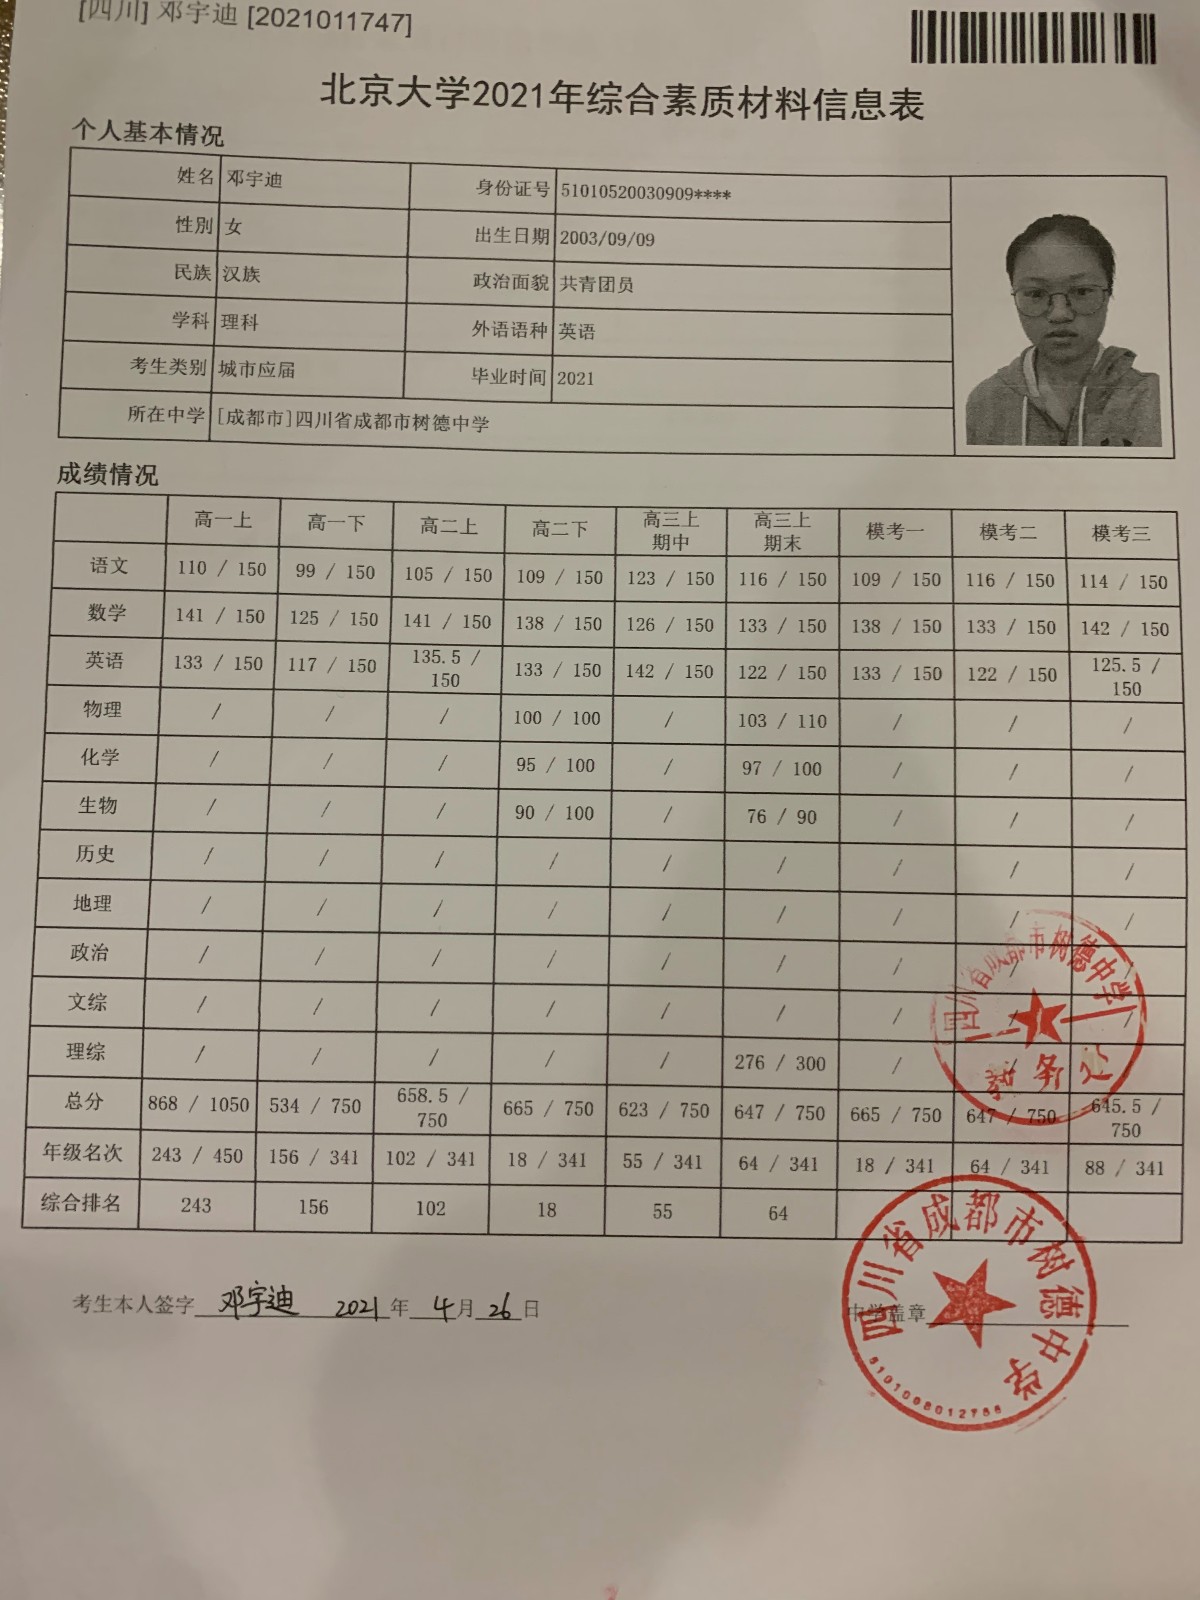 [四川] 邓宇迪 [2021011747]
北京大学2021年综合素质材料信息表
个人基本情况
姓名 邓宇迪 身份证号 51010520030909****
性别 女 出生日期 2003/09/09
民族 汉族 政治面貌 共青团员
学科 理科 外语语种 英语
考生类别 城市应届 毕业时间 2021
所在中学 [成都市]四川省成都市树德中学
成绩情况
高一上 高一下 高二上 高二下 高三上期中 高三上期末 模考一 模考二 模考三
语文 110 / 150 99 / 150 105 / 150 109 / 150 123 / 150 116 / 150 109 / 150 116 / 150 114 / 150
数学 141 / 150 125 / 150 141 / 150 138 / 150 126 / 150 133 / 150 138 / 150 133 / 150 142 / 150
英语 133 / 150 117 / 150 135.5 / 150 133 / 150 142 / 150 122 / 150 133 / 150 122 / 150 125.5 / 150
物理 / / / 100 / 100 / 103 / 110 / / /
化学 / / / 95 / 100 / 97 / 100 / / /
生物 / / / 90 / 100 / 76 / 90 / / /
历史 / / / / / / / / /
地理 / / / / / / / / /
政治 / / / / / / / / /
文综 / / / / / / / / /
理综 / / / / / 276 / 300 / / /
总分 868 / 1050 534 / 750 658.5 / 750 665 / 750 623 / 750 647 / 750 665 / 750 647 / 750 645.5 / 750
年级名次 243 / 450 156 / 341 102 / 341 18 / 341 55 / 341 64 / 341 18 / 341 64 / 341 88 / 341
综合排名 243 156 102 18 55 64
四川省成都市树德中学
教务处
考生本人签字 邓宇迪 2021 年 4 月 26 日 中学盖章
四川省成都市树德中学